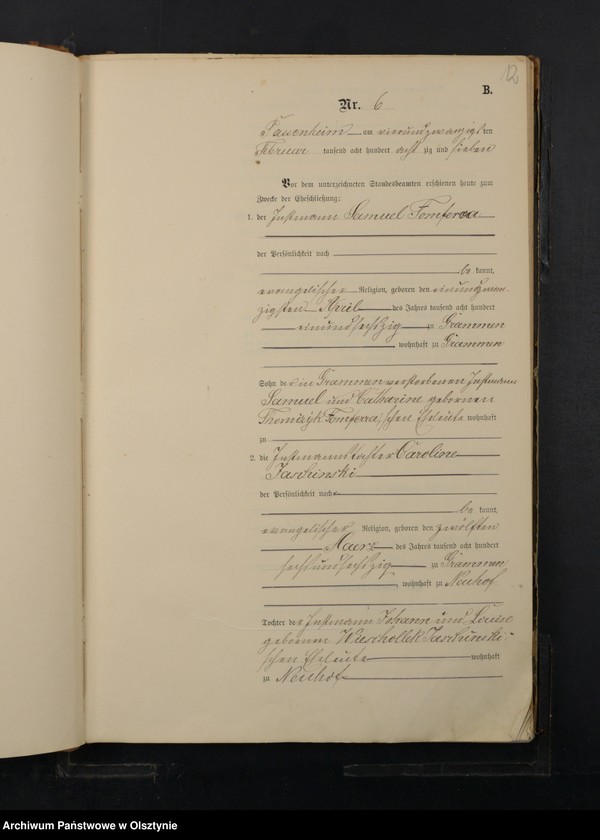 12
B.
Nr. 6
am vierundzwanzigsten
Februar tausend acht hundert acht zig und sieben
Vor dem unterzeichneten Standesbeamten erschienen heute zum
Zwecke der Eheschließung:
1. der Instmann Samuel Fomferra
der Persönlichkeit nach
be kannt,
evangelischer Religion, geboren den einundzwan-
zigsten April des Jahres tausend acht hundert
einundsechszig zu Grammen
, wohnhaft zu Grammen
Sohn der in Grammen verstorbenen Instmann
Samuel und Catharine geborenen
Fomferra'schen Eheleute wohnhaft
zu
2. die Instmannstochter Caroline
Jaschinski
der Persönlichkeit nach
be kannt,
evangelischer Religion, geboren den zwölften
Maerz des Jahres tausend acht hundert
sechsundsechszig zu Grammen
, wohnhaft zu Neuhof
Tochter der Instmann Johann und Louise
geborenen Wieschollek Jaschinski-
schen Eheleute wohnhaft
zu Neuhof
Archiwum Państwowe w Olsztynie